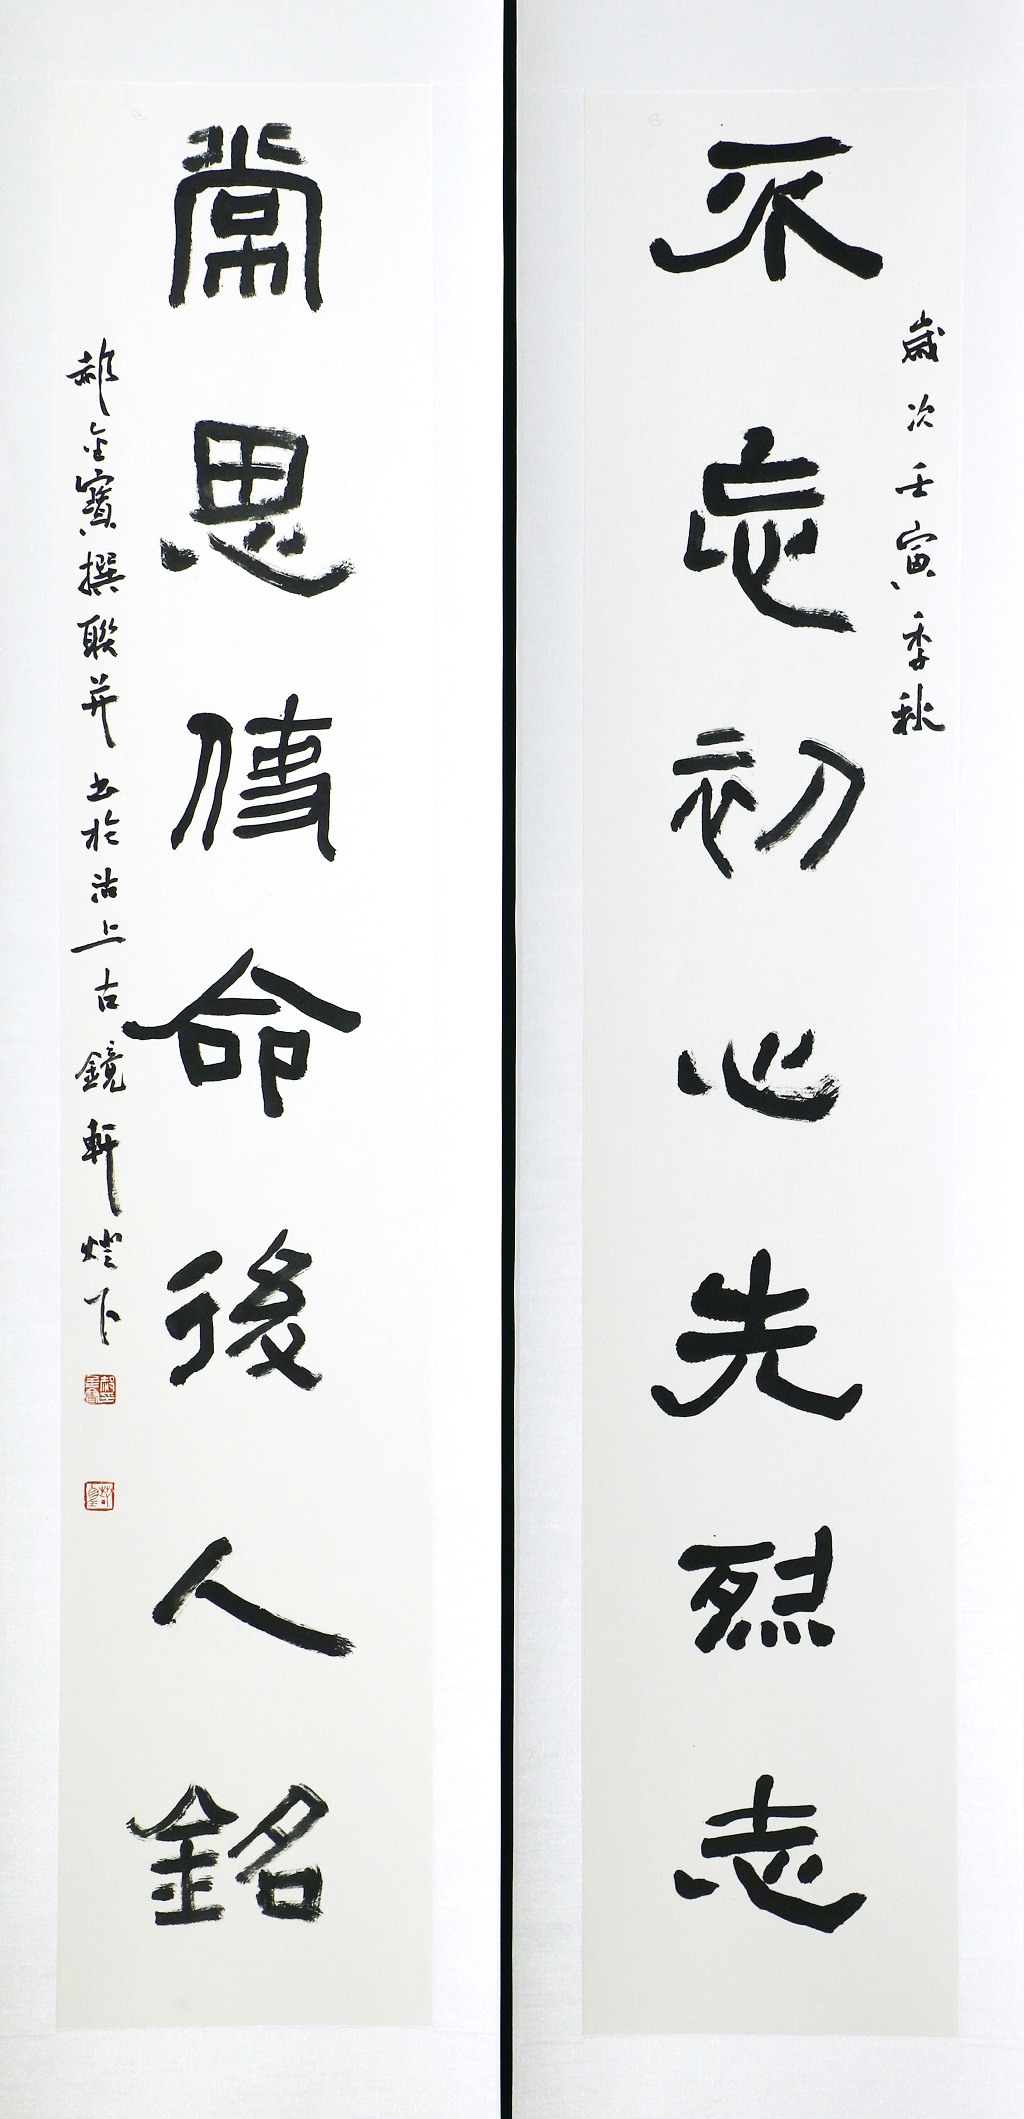 歲次壬寅季秋
不忘初心先烈志
常思使命後人銘
郝金寶撰聯并书於沽上古鏡軒燈下